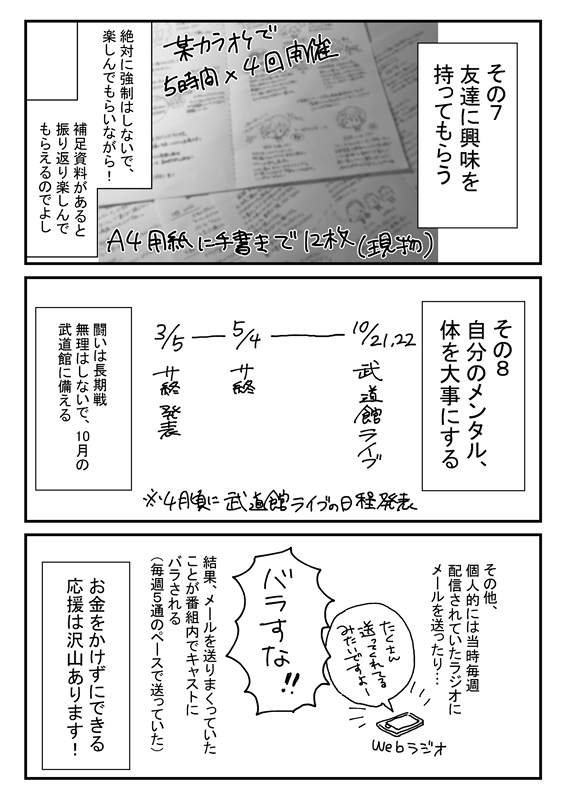 その7
友達に興味を
持ってもらう
某カラオケで
5時間×4回開催
絶対に強制はしないで、
楽しんでもらいながら！
補足資料があると
振り返り楽しんで
もらえるのでよし
A4用紙に手書きで12枚(現物)
その8
自分のメンタル、
体を大事にする
3/5
サ終発表
5/4
サ終
10/21,22
武道館ライブ
闘いは長期戦
無理はしないで、10月の
武道館に備える
※4月頃に武道館ライブの日程発表
その他、
個人的には当時毎週
配信されていたラジオに
メールを送ったり…
たくさん
送ってくれてる
みたいですよー
Webラジオ
バラすな!!
結果、メールを送りまくっていた
ことが番組内でキャストに
バラされる
（毎週5通のペースで送っていた）
お金をかけずにできる
応援は沢山あります！